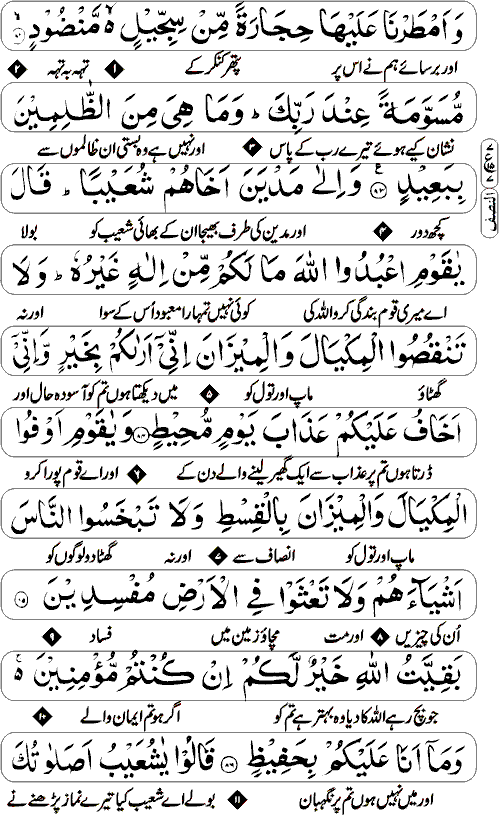 وَاَمْطَرْنَا عَلَيْهَا حِجَارَةً مِّنْ سِجِّيْلٍ ۙ مَّنْضُوْدٍ ۙ
اور برسائے ہم نے اس پر پتھر کنکر کے ۱ تہہ بہ تہہ ۲
مُّسَوَّمَةً عِنْدَ رَبِّكَ ؕ وَمَا هِىَ مِنَ الظّٰلِمِيْنَ
نشان کیے ہوئے تیرے رب کے پاس ۳ اور نہیں ہے وہ بستی ان ظالموں سے
بِبَعِيْدٍ ﴿۸۳﴾ وَاِلٰى مَدْيَنَ اَخَاهُمْ شُعَيْبًا ؕ قَالَ
کچھ دور ۴ اور مدین کی طرف بھیجا ان کے بھائی شعیب کو بولا
النصف
يٰقَوْمِ اعْبُدُوا اللّٰهَ مَا لَكُمْ مِّنْ اِلٰهٍ غَيْرُهٗ ؕ وَلَا
اے میری قوم بندگی کرو اللہ کی کوئی نہیں تمہارا معبود اُس کے سوا اور نہ
تَنْقُصُوا الْمِكْيَالَ وَالْمِيْزَانَ اِنِّىْۤ اَرٰىكُمْ بِخَيْرٍ وَّاِنِّىْۤ
گھٹاؤ ماپ اور تول کو ۵ میں دیکھتا ہوں تم کو آسودہ حال اور
اَخَافُ عَلَيْكُمْ عَذَابَ يَوْمٍ مُّحِيْطٍ ﴿۸۴﴾ وَيٰقَوْمِ اَوْفُوا
ڈرتا ہوں تم پر عذاب سے ایک گھیر لینے والے دن کے ۶ اور اے قوم پورا کرو
الْمِكْيَالَ وَالْمِيْزَانَ بِالْقِسْطِ وَلَا تَبْخَسُوا النَّاسَ
ماپ اور تول کو انصاف سے ۷ اور نہ گھٹا دو لوگوں کو
اَشْيَآءَهُمْ وَلَا تَعْثَوْا فِى الْاَرْضِ مُفْسِدِيْنَ ﴿۸۵﴾
اُن کی چیزیں ۸ اور مت مچاؤ زمین میں فساد ۹
بَقِيَّتُ اللّٰهِ خَيْرٌ لَّكُمْ اِنْ كُنْتُمْ مُّؤْمِنِيْنَ ۚ
جو بچ رہے اللہ کا دیا وہ بہتر ہے تم کو اگر ہو تم ایمان والے ۱۰
وَمَاۤ اَنَا عَلَيْكُمْ بِحَفِيْظٍ ﴿۸۶﴾ قَالُوْا يٰشُعَيْبُ اَصَلٰوتُكَ
اور میں نہیں ہوں تم پر نگہبان ۱۱ بولے اے شعیب کیا تیرے نماز پڑھنے نے